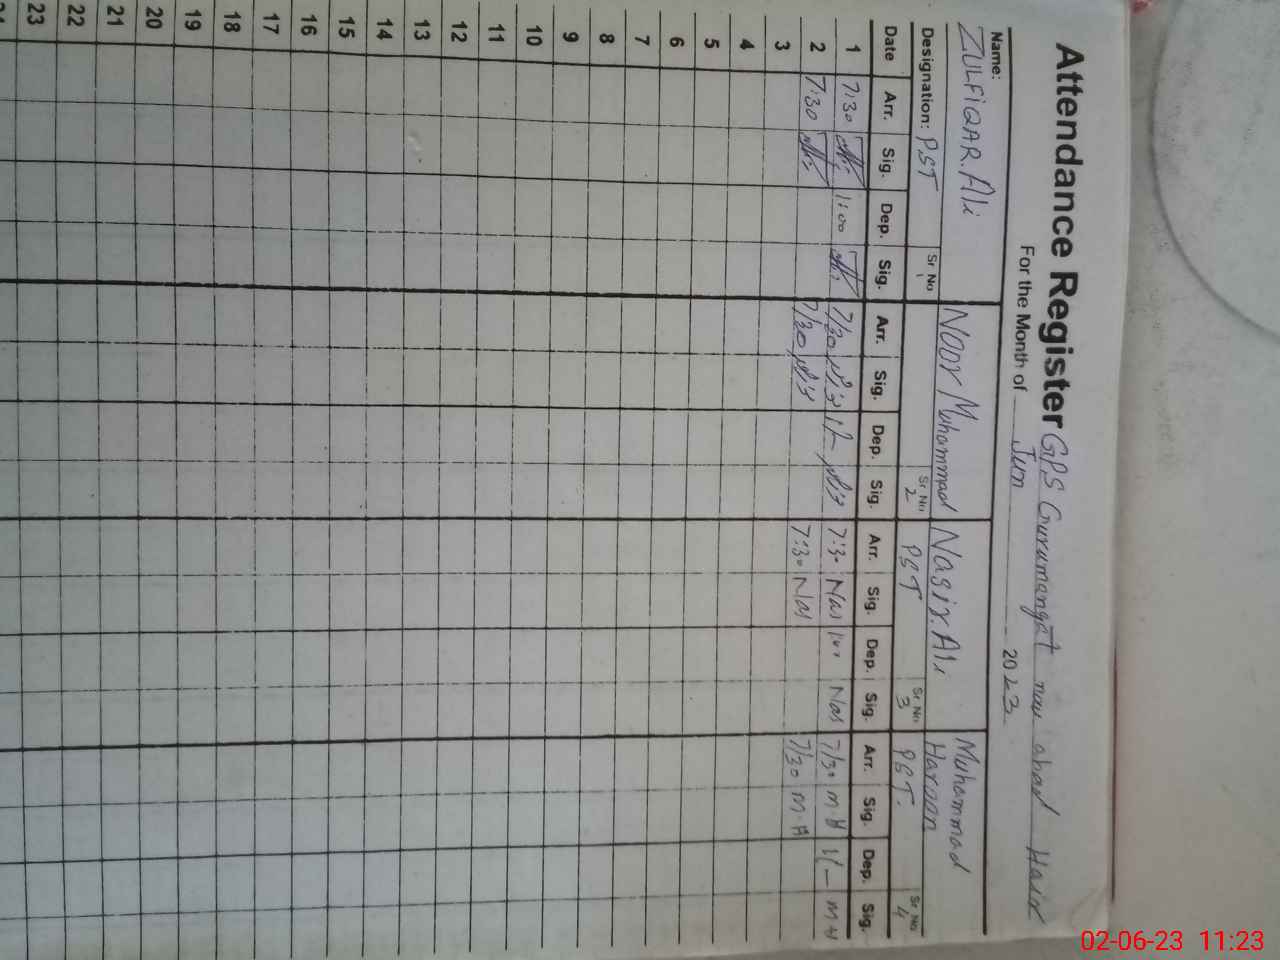 Attendance Register GPS Gurumangat now abad Hair
For the Month of Jun 2023
Name: ZULFIQAR.Ali Noor Muhammad Nasir.Ali Muhammad Haroon
Designation: PST Sr No 1 Sr No 2 PST Sr No 3 PST. Sr No 4
Date Arr. Sig. Dep. Sig. Arr. Sig. Dep. Sig. Arr. Sig. Dep. Sig. Arr. Sig. Dep. Sig.
1 7:30 1:00 7/30 1/- 7:30 Nas Nas 7/30 M H 1/- M H
2 7:30 7/30 7:30 Nas 7/30 M.H
3
4
5
6
7
8
9
10
11
12
13
14
15
16
17
18
19
20
21
22
23
02-06-23 11:23